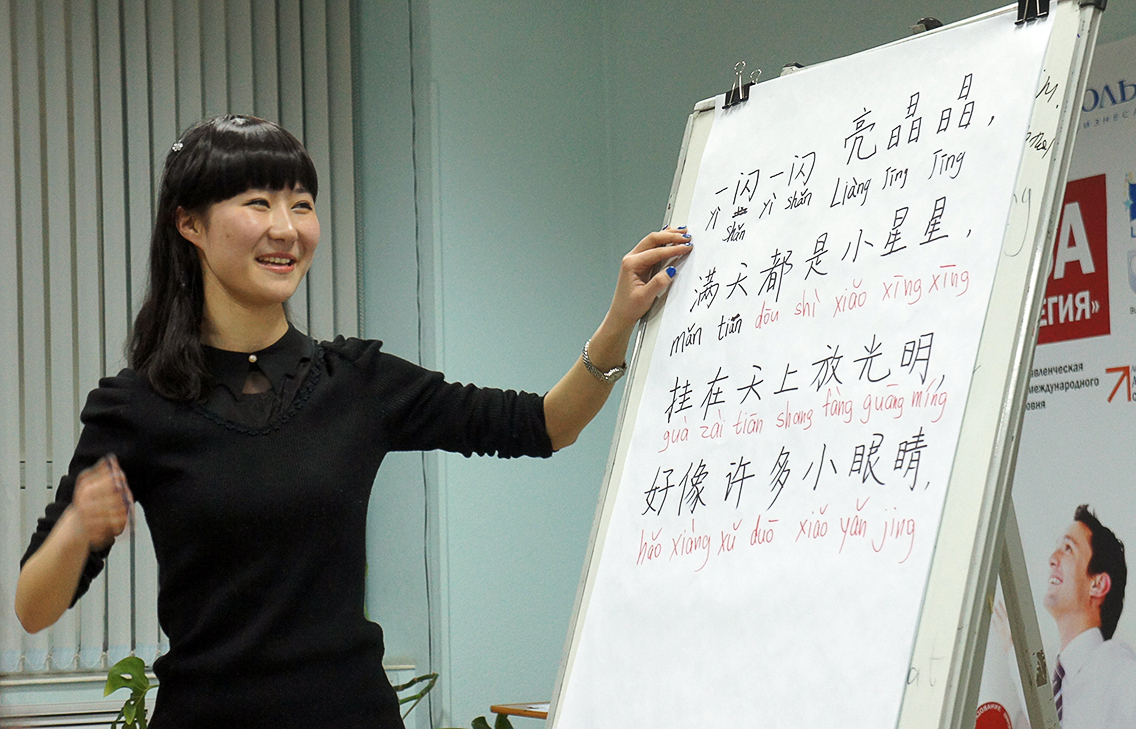 一闪一闪 亮晶晶,
yì shǎn yì shǎn Liàng Jīng Jīng
满天都是小星星,
mǎn tiān dōu shì xiǎo xīng xīng
挂在天上放光明,
guà zài tiān shang fàng guāng míng
好像许多小眼睛,
hǎo xiàng xǔ duō xiǎo yǎn jīng
ОЛЬ
ИЗНЕСА
А
ЕГИЯ»
авленческая
международного
овня